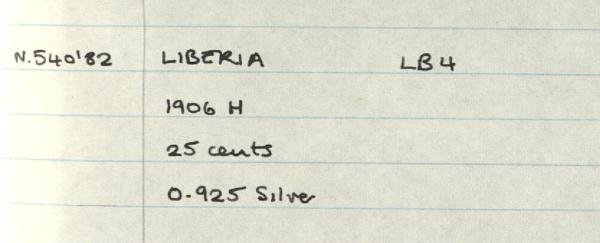 N.540'82 LIBERIA LB4
1906 H
25 cents
0.925 Silver